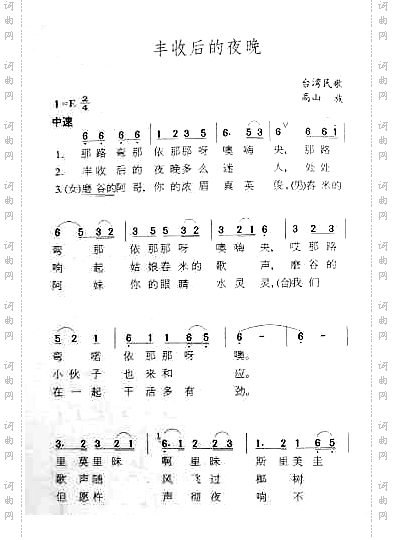 丰收后的夜晚
台湾民歌
高山 族
1=E 2/4
中速
6 6 6 6 | 1 2 3 5 | 6. 5 3 | 6 6 6 |
1. 那路弯那 依那那呀 噢嗨 央, 那路
2. 丰收后的 夜晚多么 迷 人, 处处
3.(女)磨谷的阿哥, 你的浓眉 真英 俊,(男)舂米的
6 5 3 2 | 1 2 3 5 | 3 2 1 6 | 3 2 1
弯 那 依那那呀 噢嗨 央, 哎那路
响 起 姑娘舂米的 歌 声, 磨谷的
阿 妹 你的眼睛 水灵灵,(合)我们
5 2 1 | 6 1 1 5 | 6 - | 6 - |
弯 喏 依那那呀 噢。
小伙子 也来和 应。
在一起 干活多有 劲。
3. 2 3 2 1 | 6. 1 2 1 | 1. 2 1 6 5 |
里莫里昧 啊里昧 斯里美圭
歌声随 风飞过 椰 树
但愿杵 声彻夜 响 不
词曲网
词曲网
词曲网
词曲网
词曲网
词曲网
词曲网
词曲网
词曲网
词曲网